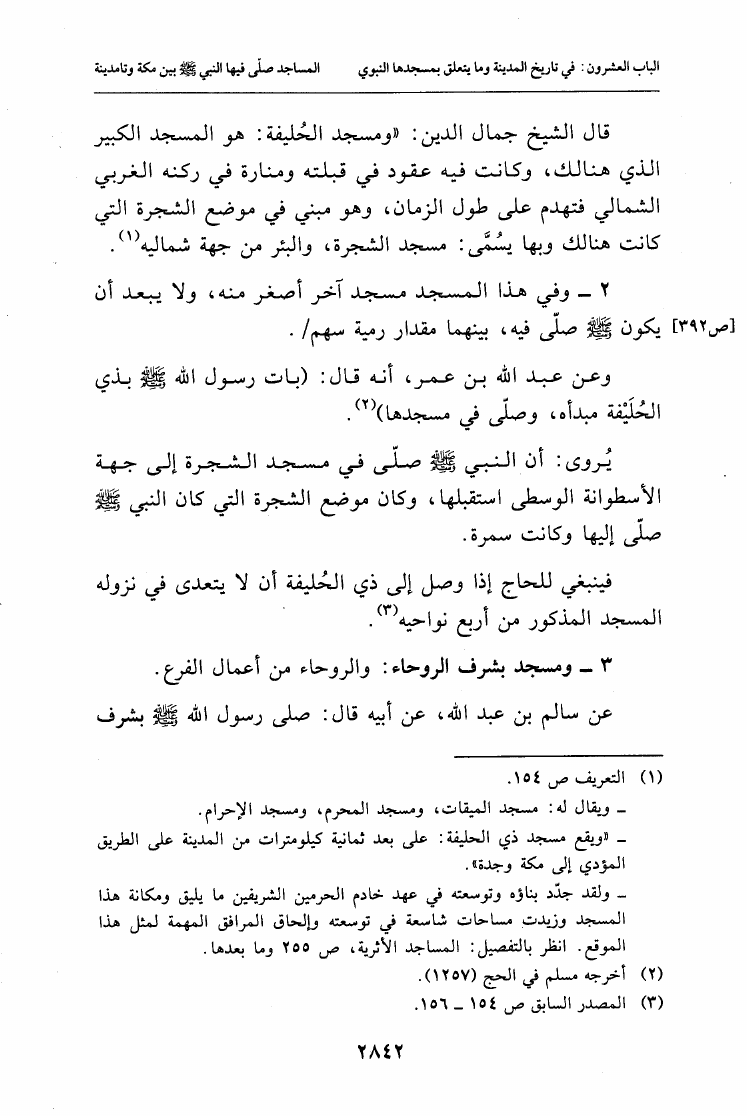 الباب العشرون: في تاريخ المدينة وما يتعلق بمسجدها النبوي المساجد صلّى فيها النبي ﷺ بين مكة وتامدينة
قال الشيخ جمال الدين: «ومسجد الحُليفة: هو المسجد الكبير
الذي هنالك، وكانت فيه عقود في قبلته ومنارة في ركنه الغربي
الشمالي فتهدم على طول الزمان، وهو مبني في موضع الشجرة التي
كانت هنالك وبها يسُمَّى: مسجد الشجرة، والبئر من جهة شماليه(١).
٢ ـ وفي هذا المسجد مسجد آخر أصغر منه، ولا يبعد أن
[ص٣٩٢] يكون ﷺ صلّى فيه، بينهما مقدار رمية سهم/ .
وعن عبد الله بن عمر، أنه قال: (بات رسول الله ﷺ بذي
الحُلَيْفة مبدأه، وصلّى في مسجدها)(٢).
يُروى: أن النبي ﷺ صلّى في مسجد الشجرة إلى جهة
الأسطوانة الوسطى استقبلها، وكان موضع الشجرة التي كان النبي ﷺ
صلّى إليها وكانت سمرة.
فينبغي للحاج إذا وصل إلى ذي الحُليفة أن لا يتعدى في نزوله
المسجد المذكور من أربع نواحيه(٣).
٣ ـ ومسجد بشرف الروحاء: والروحاء من أعمال الفرع.
عن سالم بن عبد الله، عن أبيه قال: صلى رسول الله ﷺ بشرف
(١) التعريف ص ١٥٤.
ـ ويقال له: مسجد الميقات، ومسجد المحرم، ومسجد الإحرام.
ـ «ويقع مسجد ذي الحليفة: على بعد ثمانية كيلومترات من المدينة على الطريق
المؤدي إلى مكة وجدة».
ـ ولقد جدّد بناؤه وتوسعته في عهد خادم الحرمين الشريفين ما يليق ومكانة هذا
المسجد وزيدت مساحات شاسعة في توسعته وإلحاق المرافق المهمة لمثل هذا
الموقع. انظر بالتفصيل: المساجد الأثرية، ص ٢٥٥ وما بعدها.
(٢) أخرجه مسلم في الحج (١٢٥٧).
(٣) المصدر السابق ص ١٥٤ ـ ١٥٦.
٢٨٤٢